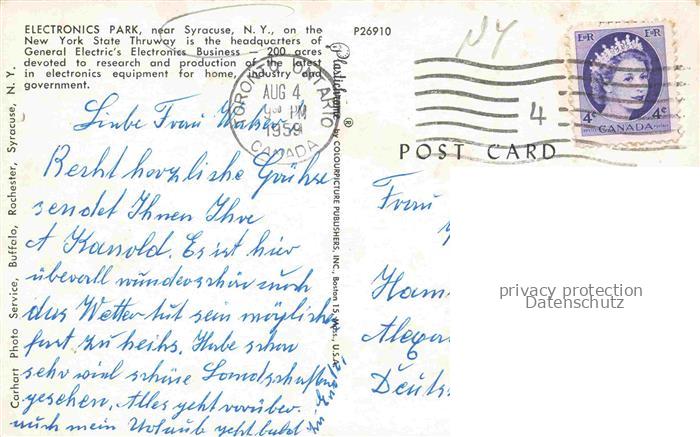 ELECTRONICS PARK, near Syracuse, N. Y., on the
New York State Thruway is the headquarters of
General Electric's Electronics Business — 200 acres
devoted to research and production of the latest
in electronics equipment for home, industry and
government.
P26910
NY
TORONTO ONTARIO
AUG 4
PM
1959
CANADA
4
4¢ 4¢
CANADA
POST CARD
Carhart Photo Service, Buffalo, Rochester, Syracuse, N. Y.
Plastichrome ® by COLOURPICTURE PUBLISHERS, INC., Boston 15, Mass., U.S.A.
Liebe Frau
Recht herzliche Grüße
sendet Ihnen Ihre
A Kanold. Es ist hier
überall wunderschön auch
das Wetter tut sein möglichs
fast zu heiß. Habe schon
sehr viel schöne Landschaften
gesehen. Alles geht vorüber
auch mein Urlaub geht bald
Frau
Ham
Alexa
Deuts
privacy protection
Datenschutz